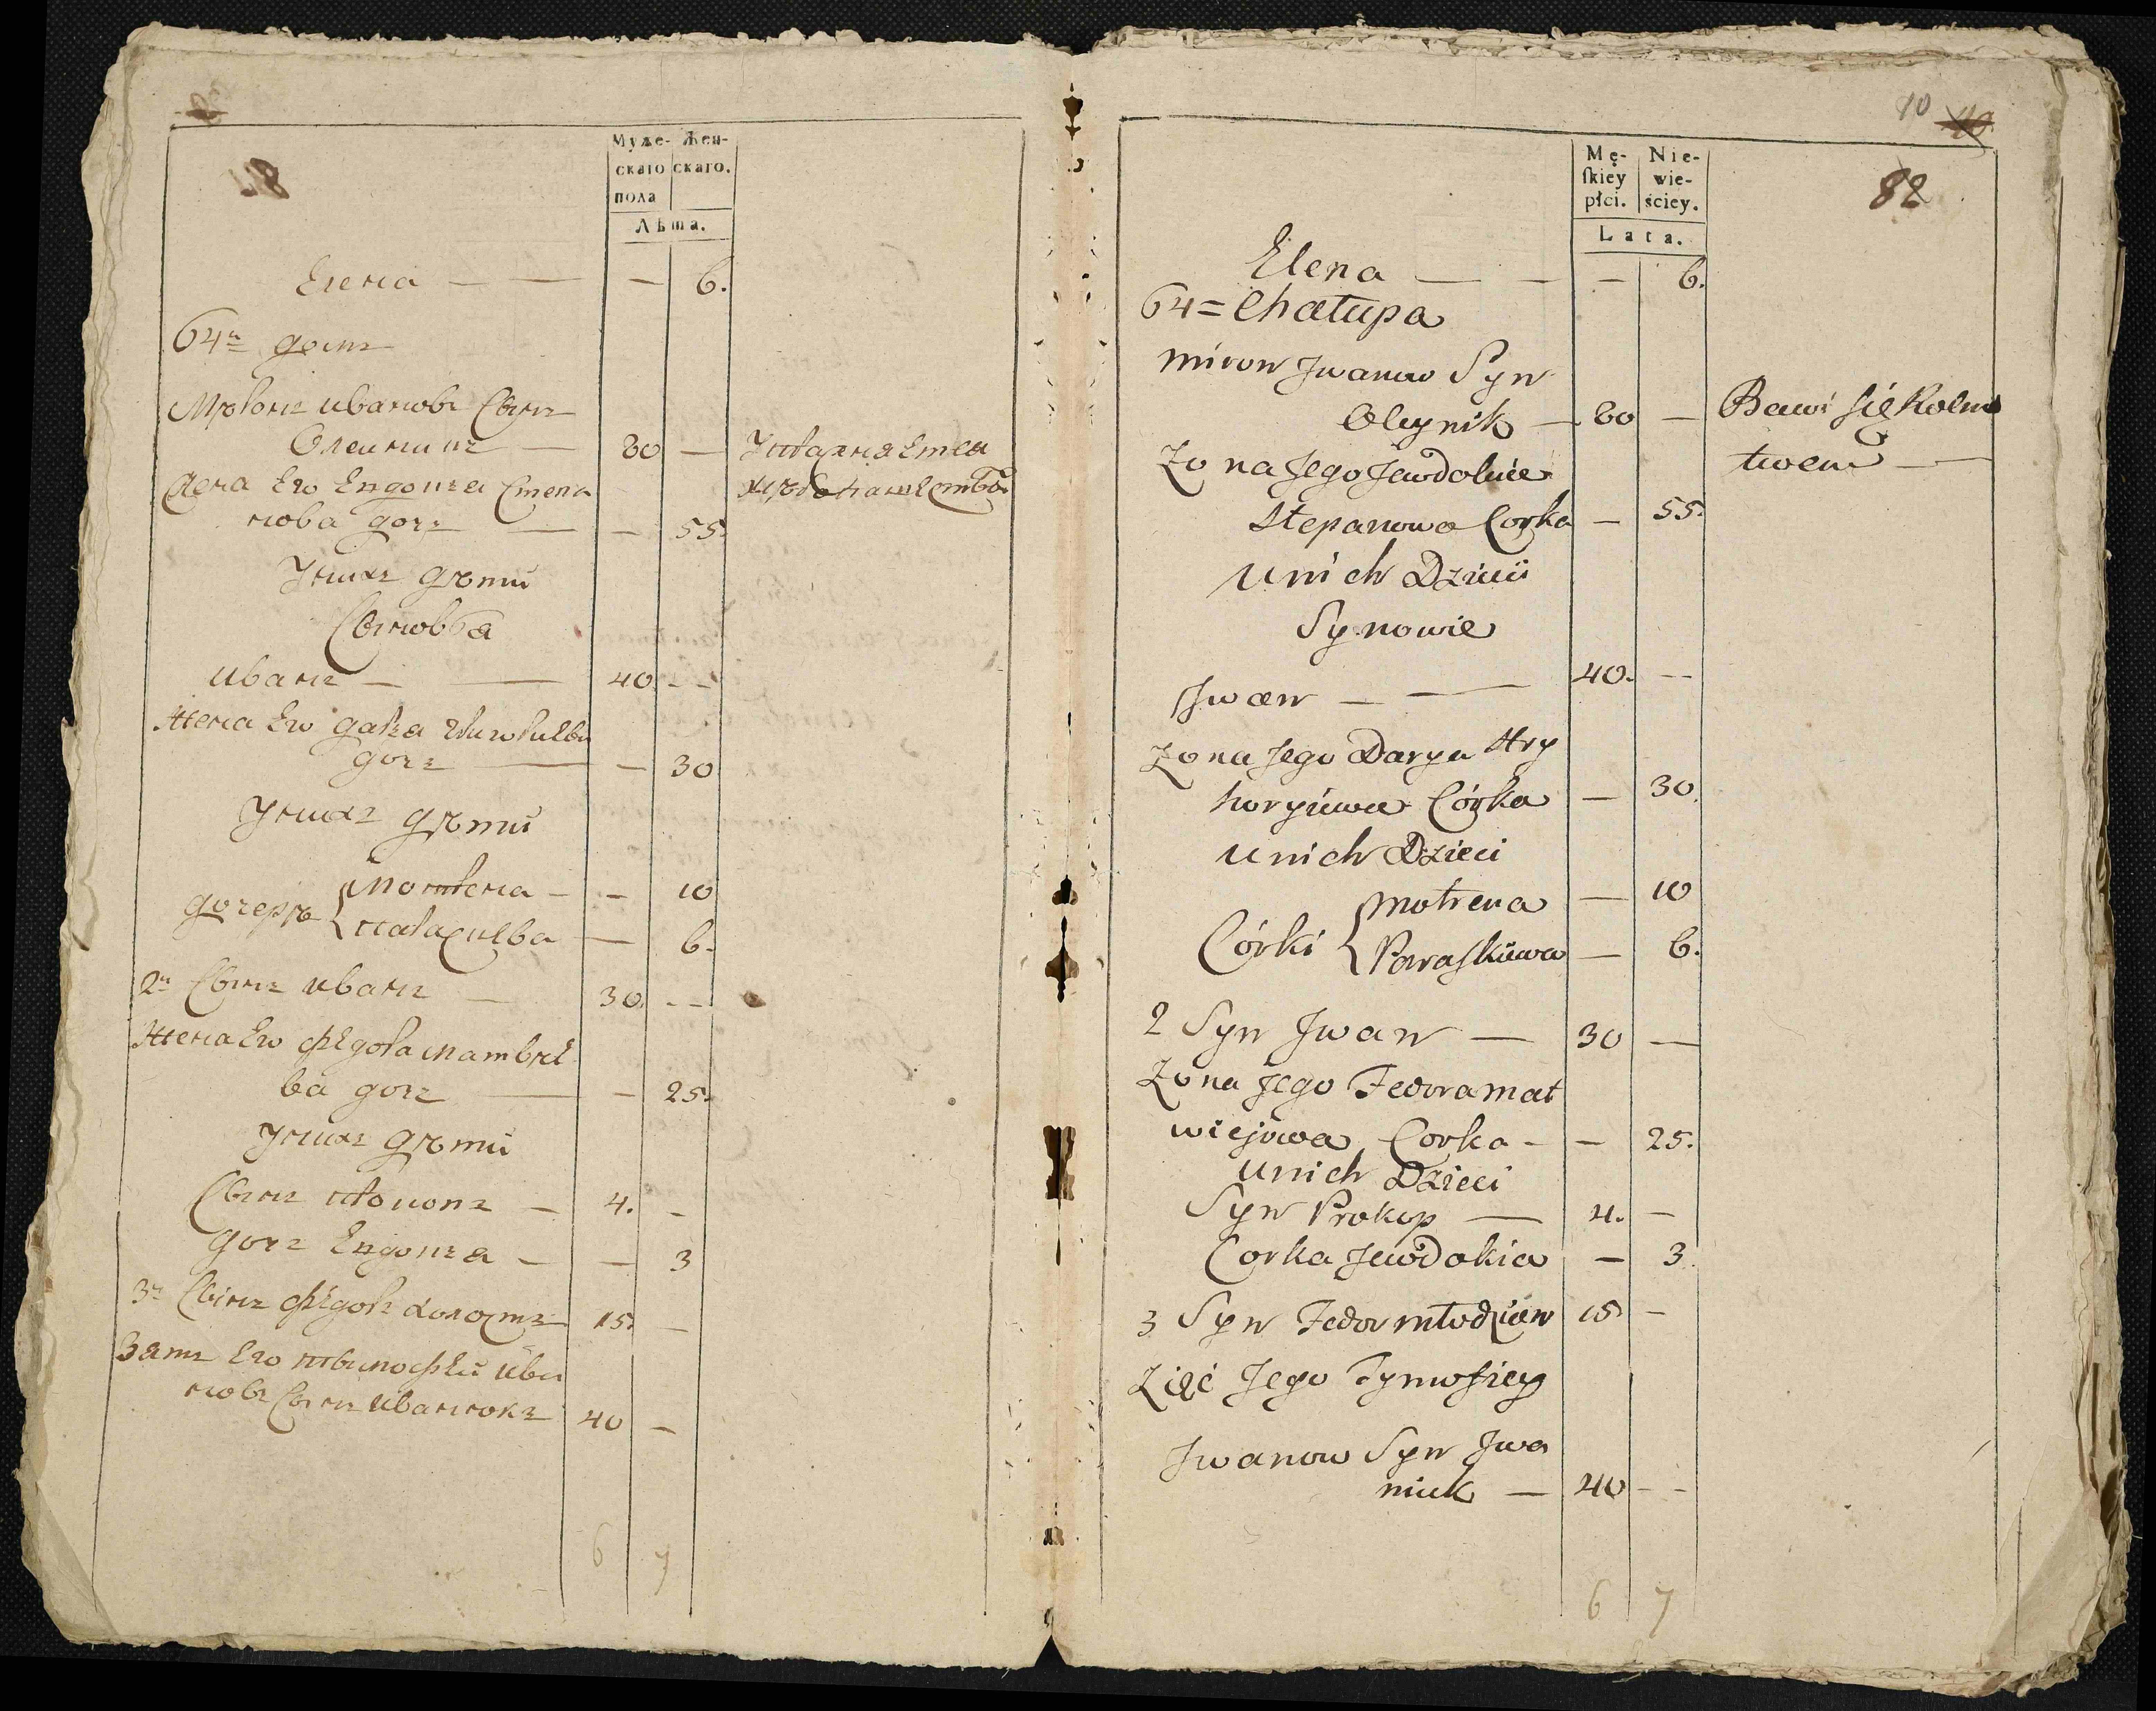 81
Муже-
скаго
пола
Жен-
скаго.
Лѣта.
Елена — — — 6.
64й домъ
Миронъ Ивановъ Сынъ
Олейникъ — 60 —
Жена Ево Евдокия Степа
нова дочь — — 55.
У нихъ дѣти
Сыновья
Иванъ — — 40 - -
Жена Ево Даря Григориева
дочь — — 30
У нихъ дѣти
дочери
Мотрена — — 10
Параскева — 6.
2й Сынъ Иванъ — 30. - -
Жена Ево Федора Матвѣе
ва дочь — — 25.
У нихъ дѣти
Сынъ Прокопъ — 4. -
дочь Евдокия — — 3
3й Сынъ Федоръ холостъ 15. —
Зять Его Тимофей Ива
новъ Сынъ Иванюкъ 40 —
6 7
10
82
Mę-
ſkiey
płci.
Nie-
wie-
ściey.
Lata.
Elena — — — 6.
64 = Chałupa
Miron Jwanow Syn
Oleynik — 60 — Bawi się Rolni
ctwem —
Zona Jego Jewdokia
Stepanowa Corka — 55.
U nich Dzieci
Synowie
Jwan — — 40. - -
Zona Jego Darya Hry
horyiowa Córka — 30.
U nich Dzieci
Córki
Motrena — 10
Paraskiewa — 6.
2 Syn Jwan — 30 —
Zona Jego Fedora Mat
wiejowa Corka - — 25.
U nich Dzieci
Syn Prokop — 4. —
Corka Jewdokia — 3.
3 Syn Fedor młodzien 15 -
Zięć Jego Tymofiey
Jwanow Syn Jwa
niuk — 40 - -
6 7